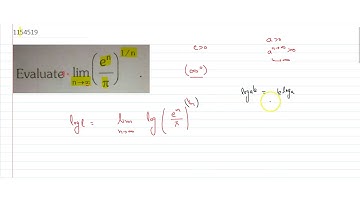 1154519
Evaluate lim n→∞ (e^n/π)^1/n .
e>0
a>0
a^n→∞ >0
n→∞
(∞^0)
log a^b = b log a
log L = lim n→∞ log (e^n/π)^(1/n)